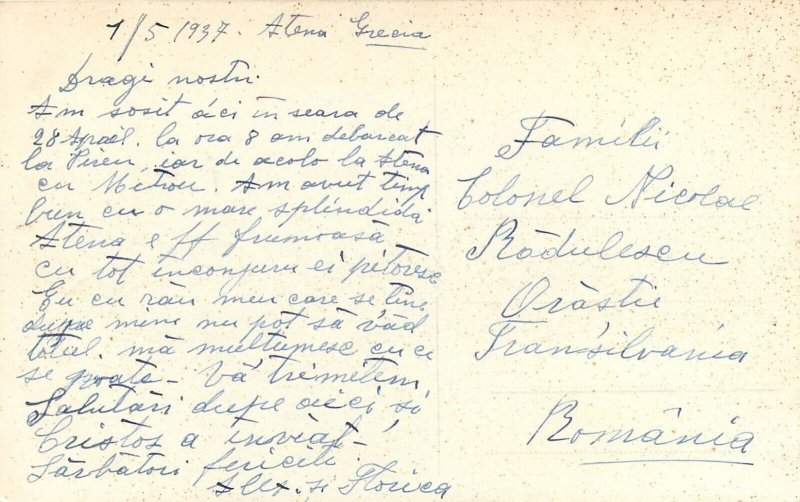 1/5 1937. Atena Grecia
Dragi noștri.
Am sosit aici in seara de
28 April. la ora 8 am debarcat
la Pireu, iar de acolo la Atena
cu Metrou. Am avut timp
bun cu o mare splendidă
Atena e ff frumoasă
cu tot inconjuru ei pitoresc
Eu cu rău meu care se tine
dupe mine nu pot să văd
totul. mă multumesc cu ce
se poate - Vă trimetem
Salutări dupe aici, si
Cristos a inviat -
Sărbători fericite.
Alex. si Florica
Familii
Colonel Nicolae
Rădulescu
Orăstie
Transilvania
România